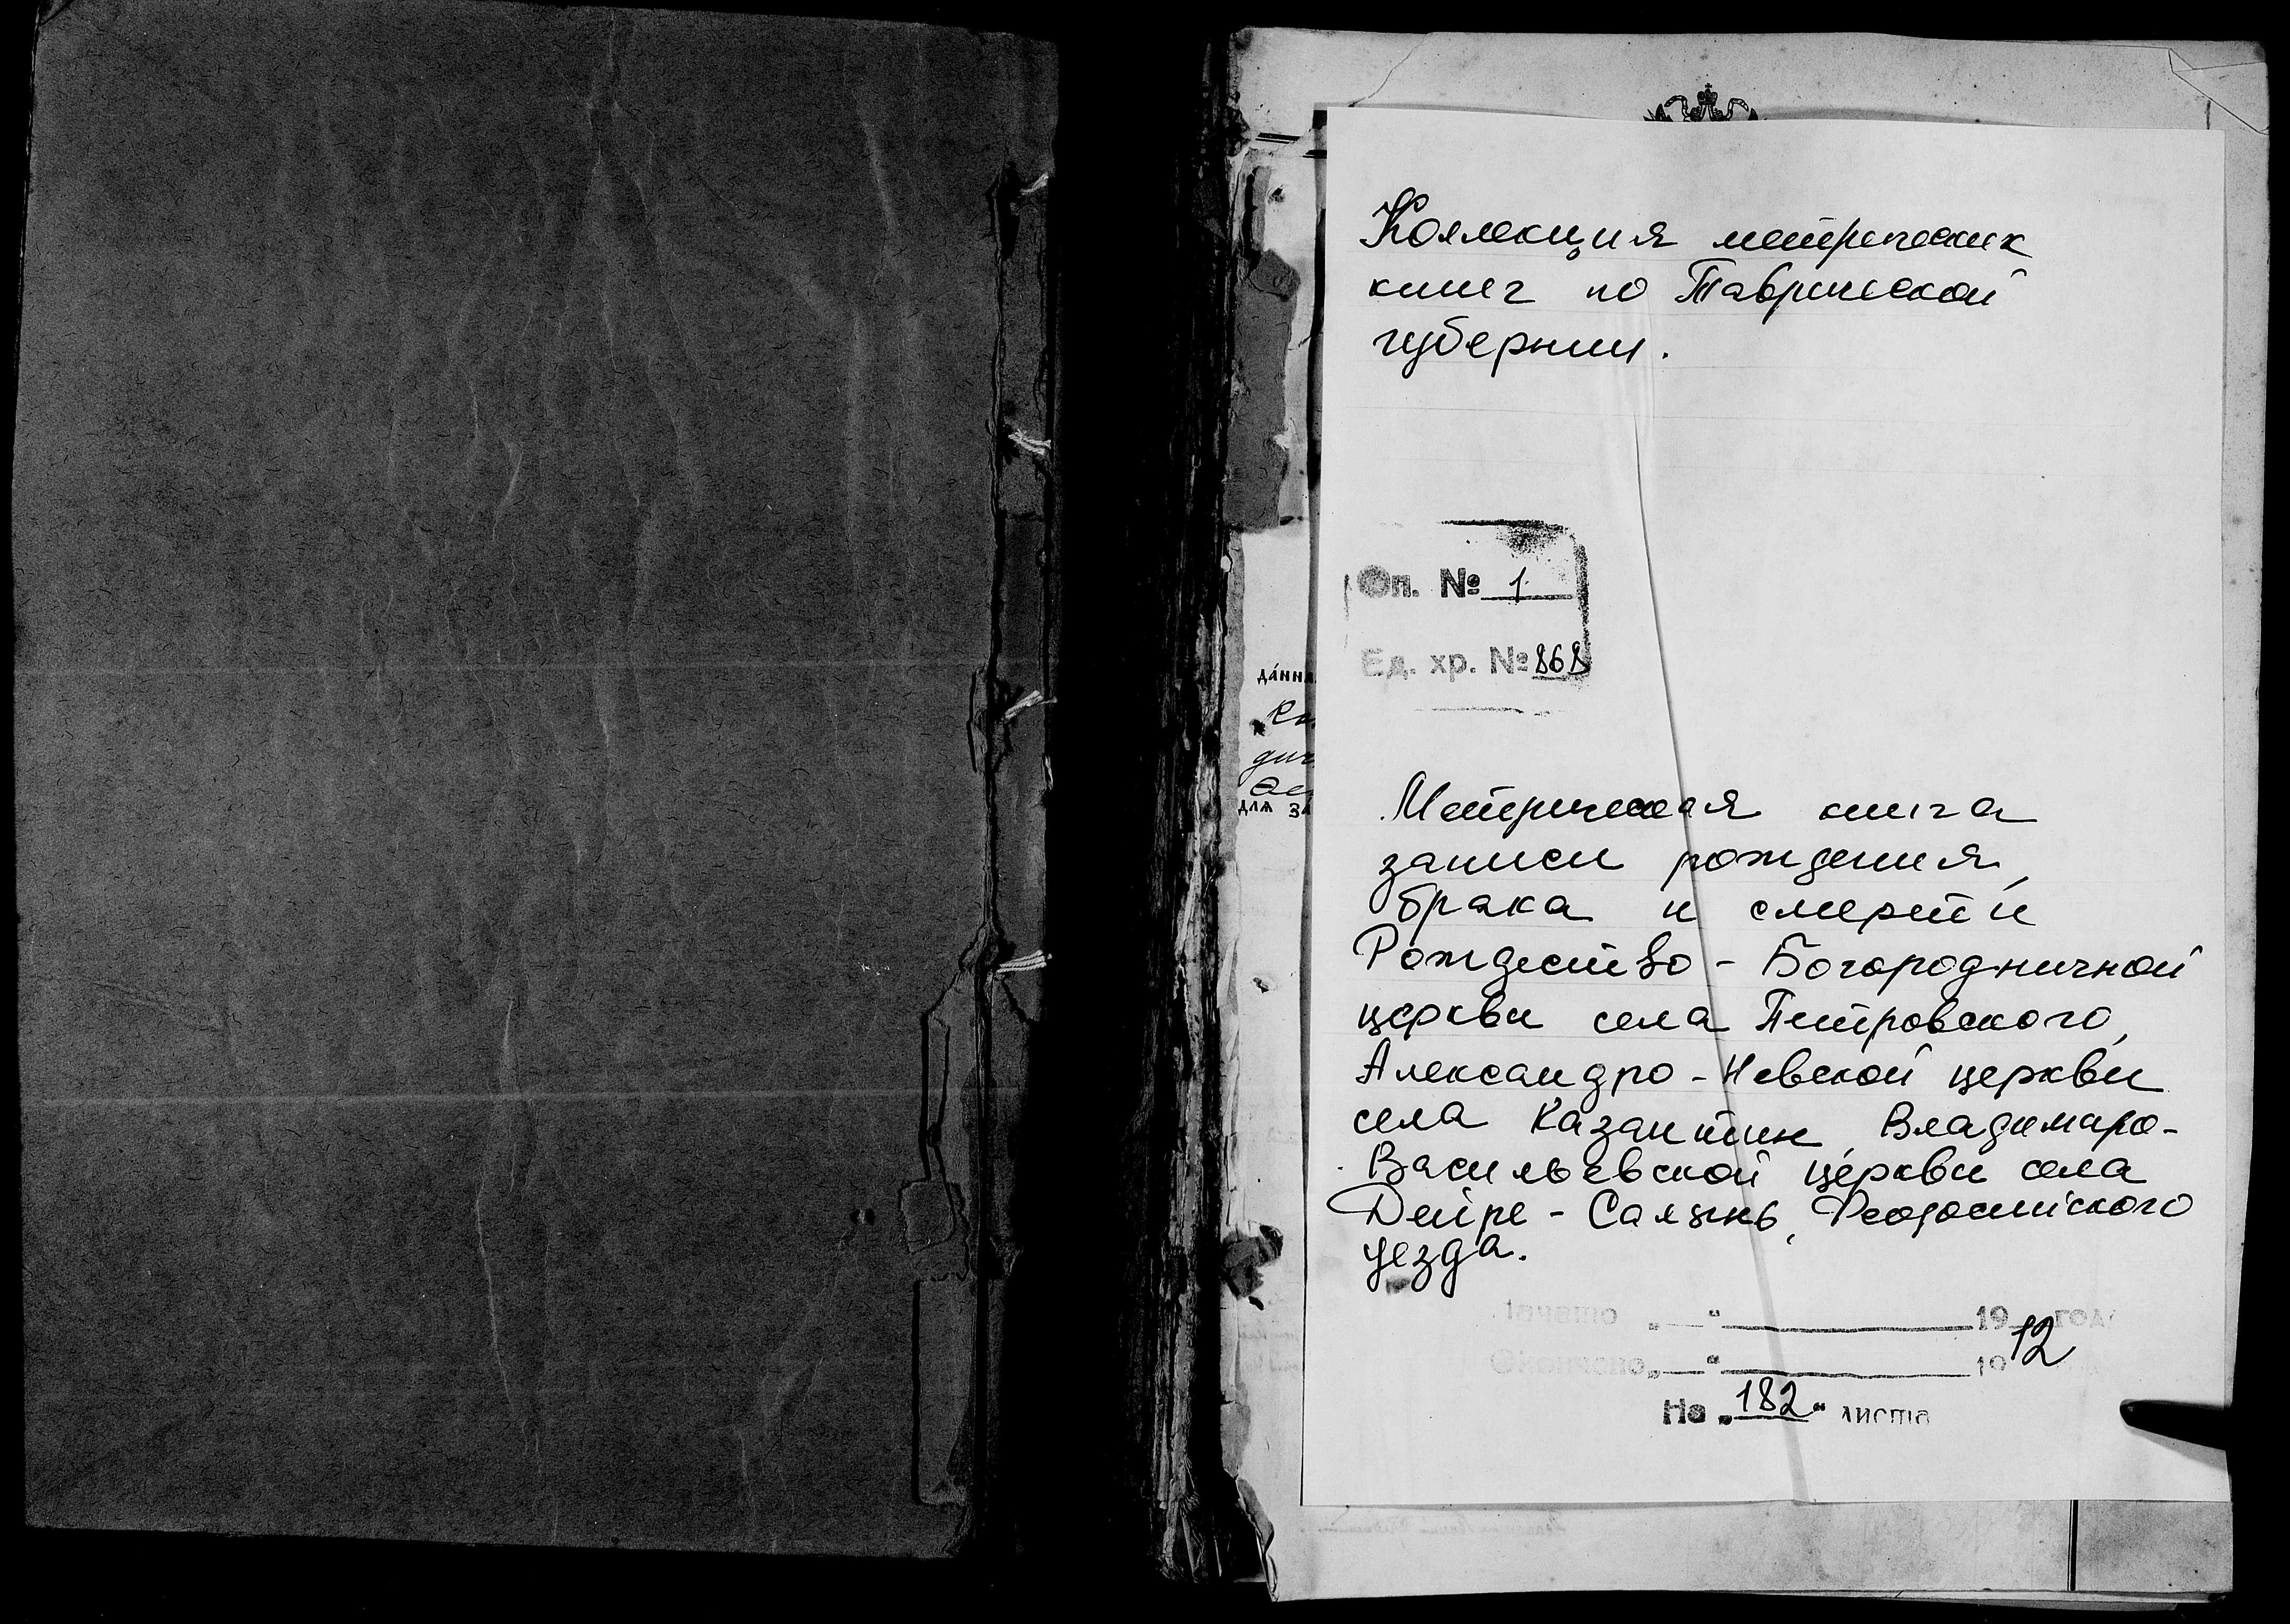 Коллекция метрических
книг по Таврической
губернии.
Оп. № 1
Ед. хр. № 868
Метрическая книга
записи рождения,
брака и смерти
Рождество-Богородничной
церкви села Петровского,
Александро-Невской церкви
села Казантип, Владимиро-
Васильевской церкви села
Дейре-Салынь, Феодосийского
уезда.
Начато „ “ 19 12 года
Окончено „ “ 19
На „182“ листа
данна
для за